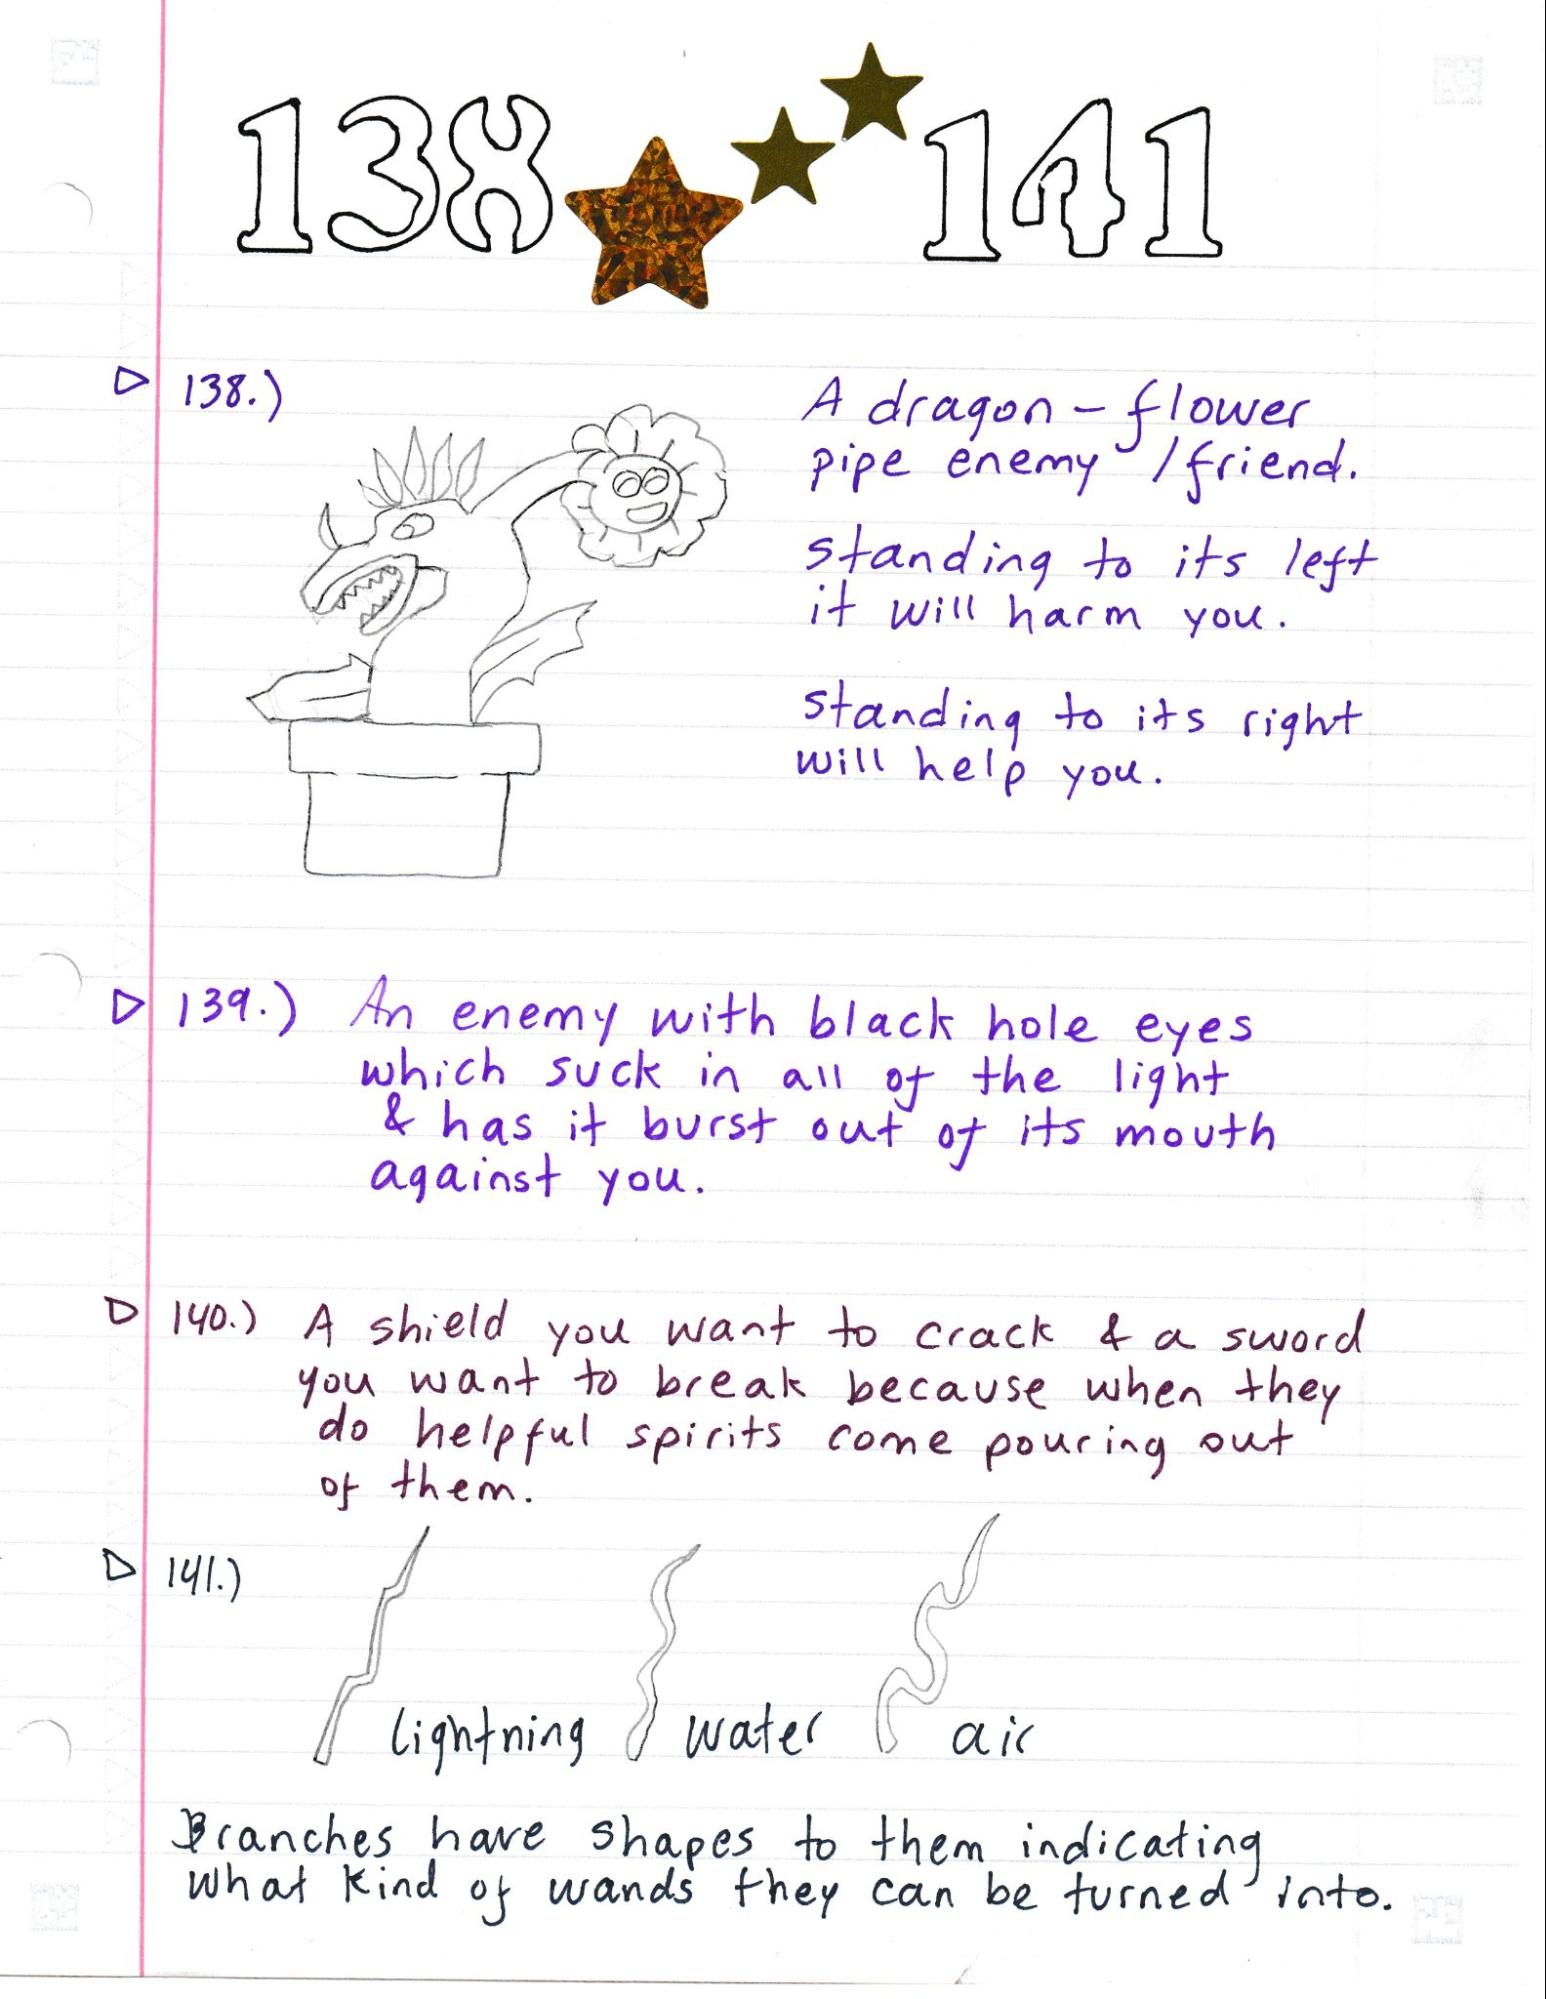 138 141
138.)
A dragon - flower
pipe enemy / friend.
standing to its left
it will harm you.
standing to its right
will help you.
139.) An enemy with black hole eyes
which suck in all of the light
& has it burst out of its mouth
against you.
140.) A shield you want to crack & a sword
you want to break because when they
do helpful spirits come pouring out
of them.
141.)
lightning water air
Branches have shapes to them indicating
what kind of wands they can be turned into.